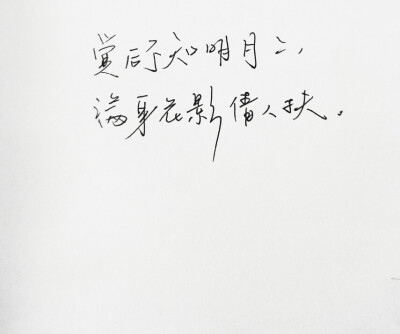 觉后不知明月上，
满身花影倩人扶。